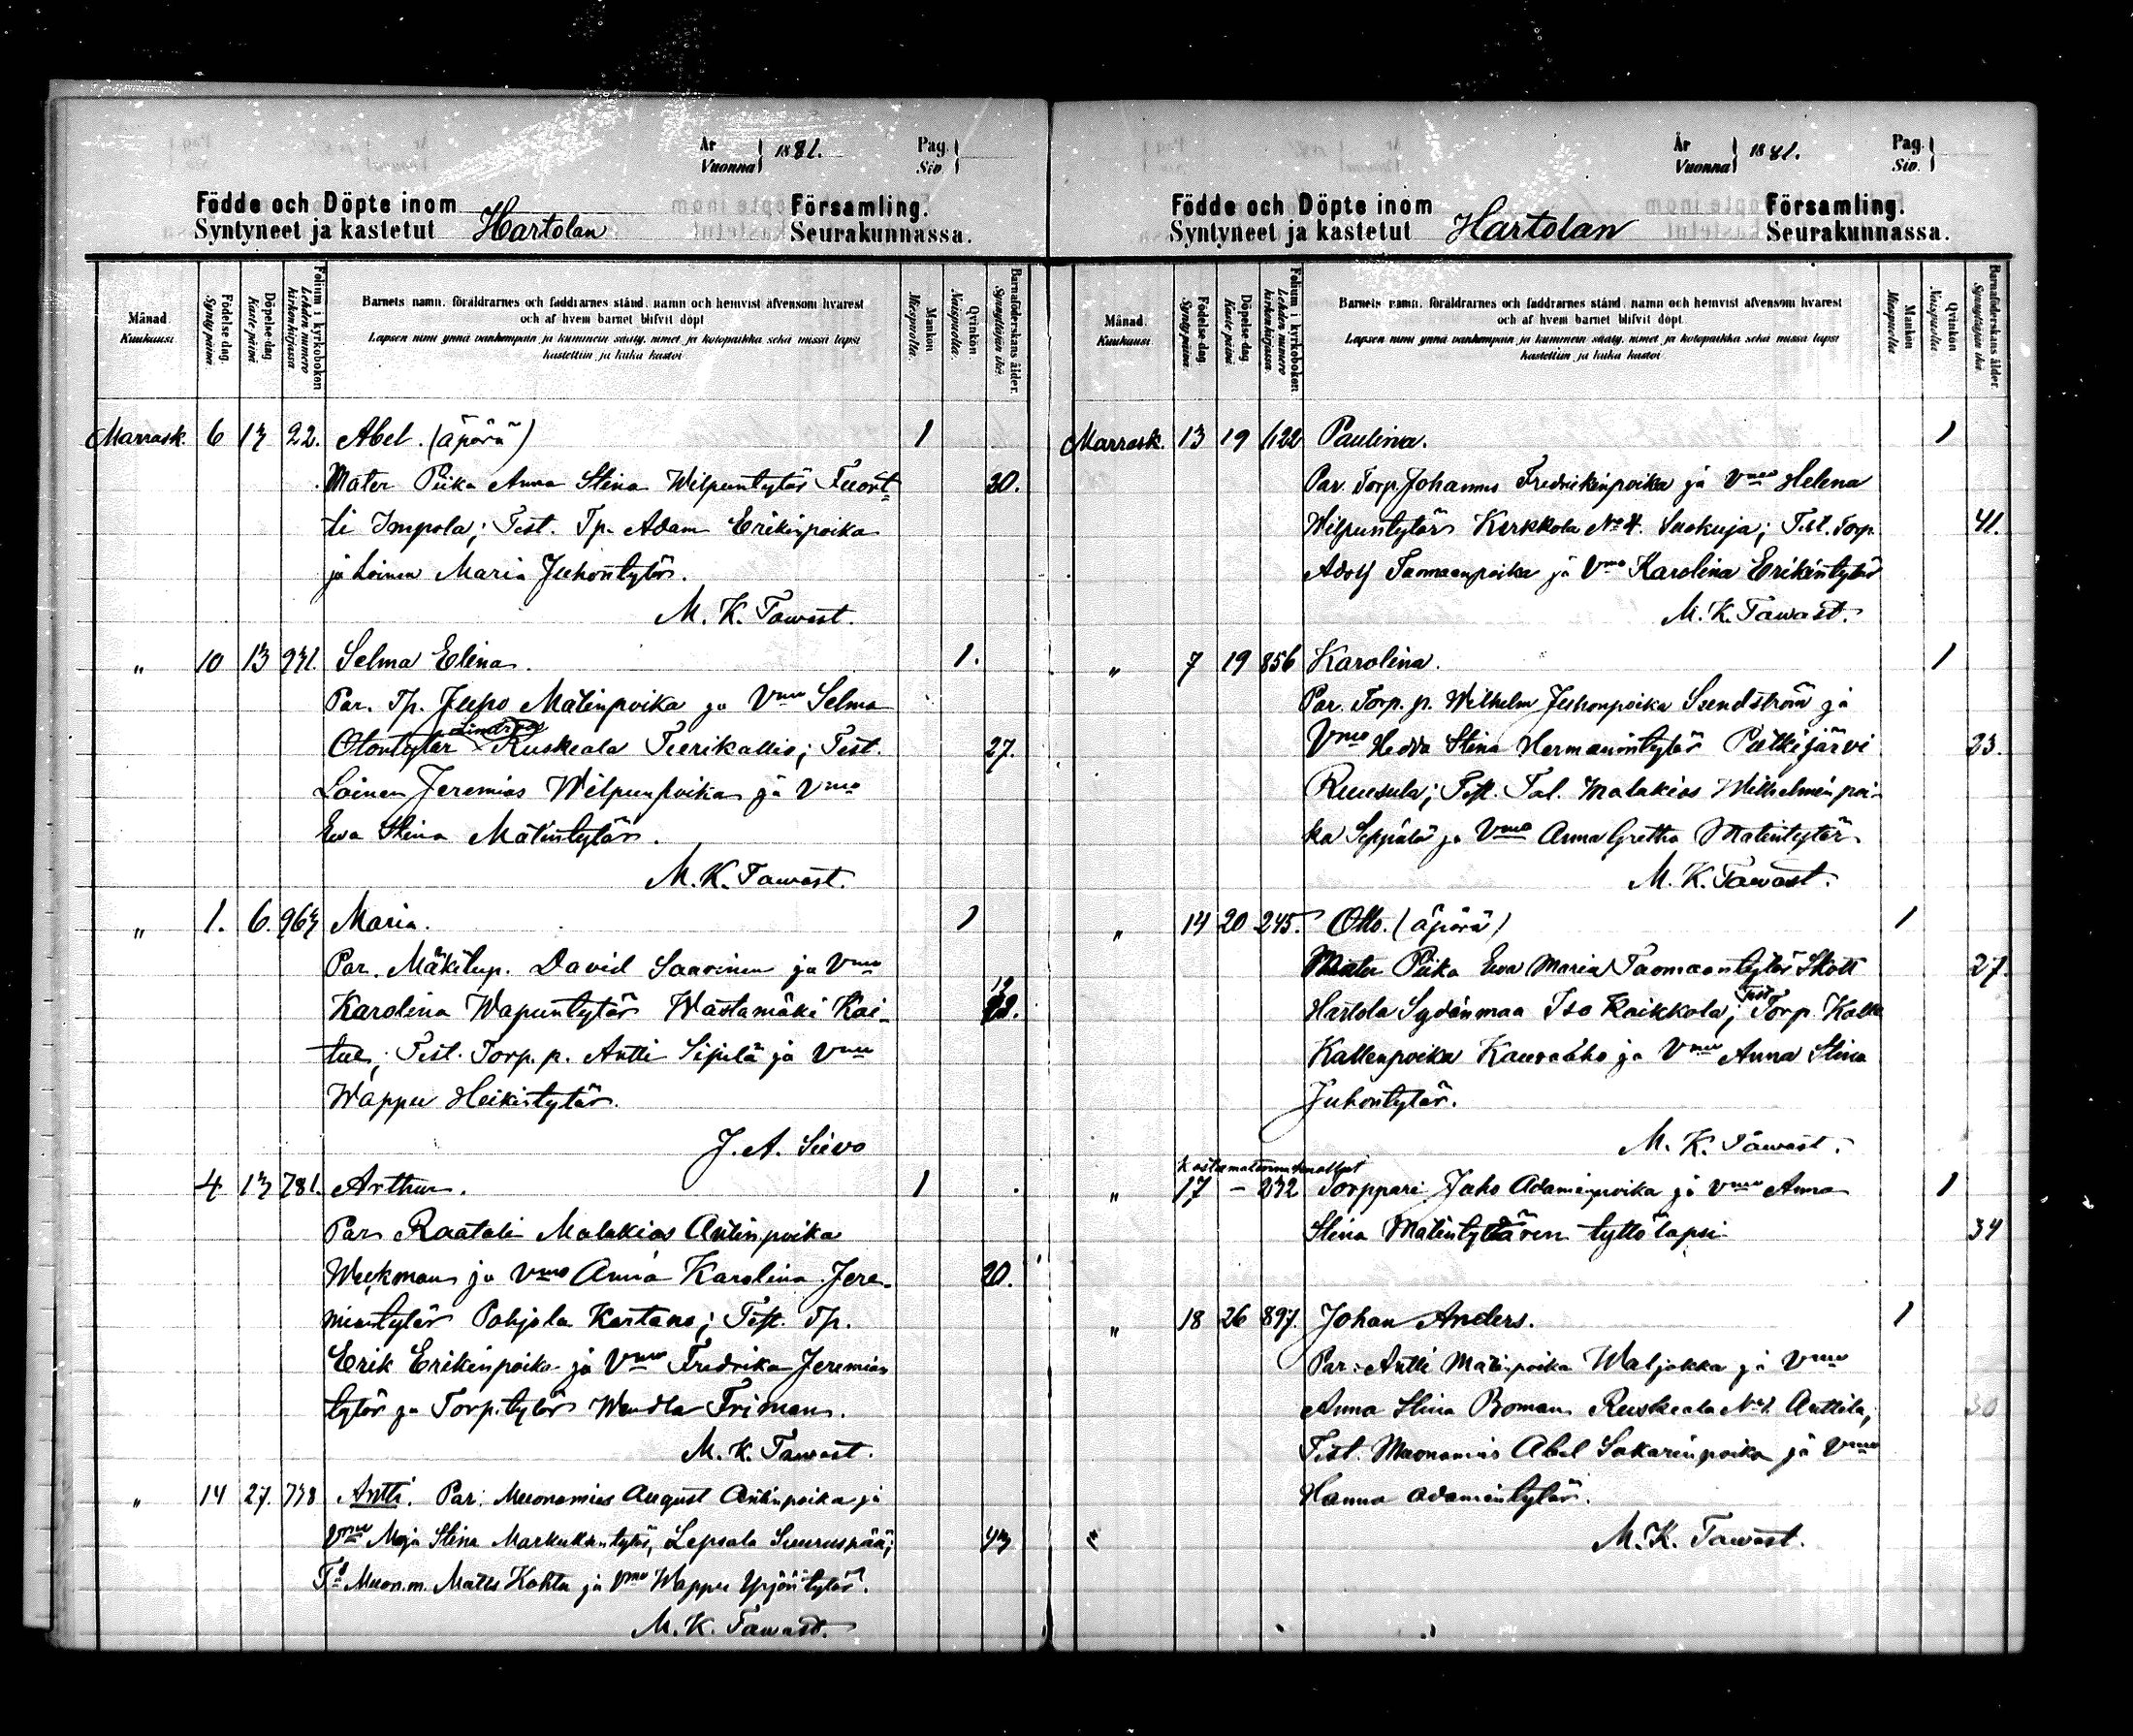 År
Vuonna } 1881.
Pag.
Siv. }
Födde och Döpte inom Hartolan Församling.
Syntyneet ja kastetut Seurakunnassa.
Månad.
Kuukausi.
Födelse-dag.
Synty päivä.
Döpelse-dag.
Kaste päivä.
Folium i kyrkoboken
Lehden numero
kirkon kirjassa.
Barnets namn, föräldrarnes och faddrarnes stånd, namn och hemvist äfvensom hvarest
och af hvem barnet blifvit döpt
Lapsen nimi ynnä vanhempain ja kummein sääty, nimet ja kotopaikka sekä missä lapsi
kastettiin ja kuka kastoi
Mankön
Miespuolta.
Qvinkön
Naispuolta.
Barnaföderskans ålder.
Synnyttäjän ikä.
Marrask. 6 13 22. Abel. (äpärä) 1
Mater Piika Anna Stina Wilpuntytär Fuort 30.
ti Impola; Test. Tp. Adam Erikinpoika
ja Loinen Maria Juhontytär.
M. K. Tawast.
„ 10 13 931. Selma Elina. 1.
Par. Tp. Juho Matinpoika ja Vmo Selma
Otontytär Ruskeala Teerikallio; Test. 27.
Loinen Jeremias Wilpunpoika ja Vmo
Ewa Stina Matintytär.
M. K. Tawast.
„ 1. 6. 963 Maria. 1
Par. Mäkitup. David Saarinen ja Vmo
Karolina Wapuntytär Wastamäki Koi- 19
tue; Test. Torp. p. Antti Sipilä ja Vmo
Wappu Heikintytär.
J. A. Sievo
4 13 781. Arthur. 1
Par. Raatali Malakias Antinpoika
Weekman ja Vmo Anna Karolina Jere- 20.
miantytär Pohjola Kartano; Test. Tp.
Erik Erikinpoika ja Vmo Fredrika Jeremian
tytär ja Torp. tytär Wendla Friman.
M. K. Tawast.
„ 14 27. 738 Antti. Par: Muonamies August Antinpoika ja
Vmo Maja Stina Markukkantytär, Lepsala Suuruspää; 43
Tt Muon. m. Matts Kohta ja Vmo Wappu Yrjöntytär.
M. K. Tawast.
År
Vuonna } 1881.
Pag.
Siv. }
Födde och Döpte inom Hartolan Församling.
Syntyneet ja kastetut Seurakunnassa.
Månad.
Kuukausi.
Födelse-dag.
Synty päivä.
Döpelse-dag.
Kaste päivä.
Folium i kyrkoboken
Lehden numero
kirkon kirjassa.
Barnets namn, föräldrarnes och faddrarnes stånd, namn och hemvist äfvensom hvarest
och af hvem barnet blifvit döpt
Lapsen nimi ynnä vanhempain ja kummein sääty, nimet ja kotopaikka sekä missä lapsi
kastettiin ja kuka kastoi
Mankön
Miespuolta.
Qvinkön
Naispuolta.
Barnaföderskans ålder.
Synnyttäjän ikä.
Marrask. 13 19 1122 Paulina. 1
Par. Torp. Johannes Fredrikinpoika ja Vmo Helena
Wilpuntytär Kirkkola No 4. Suokuja; Test. Torp. 41.
Adolf Tuomaanpoika ja Vmo Karolina Erikintytär
M. K. Tawast.
„ 7 19 856 Karolina. 1
Par. Torp. p. Wilhelm Juhonpoika Sundström ja
Vmo Hedda Stina Hermanintytär Putkijärvi 23.
Ruusula; Test. Tal. Malakias Wilhelminpoi-
ka Seppälä ja Vmo Anna Gretha Matintytär
M. K. Tawast.
„ 14 20 245. Otto. (äpärä) 1
Mater Piika Ewa Maria Taomaantytär Skott 27.
Hartola Sydänmaa Iso Kaikkola; Test. Torp. Kalle
Kallenpoika Kauraaho ja Vmo Anna Stina
Juhontytär.
M. K. Tawast.
Kastamatonna kuollut
„ 17 – 232 Torppari Juho Adaminpoika ja Vmo Anna 1
Stina Matintyttären tyttölapsi 34
„ 18 26 897. Johan Anders. 1
Par: Antti Matinpoika Waljakka ja Vmo
Anna Stina Boman Ruskeala No 1. Anttila; 30
Test. Muonamies Abel Sakarinpoika ja Vmo
Hanna Adamintytär.
M. K. Tawast.